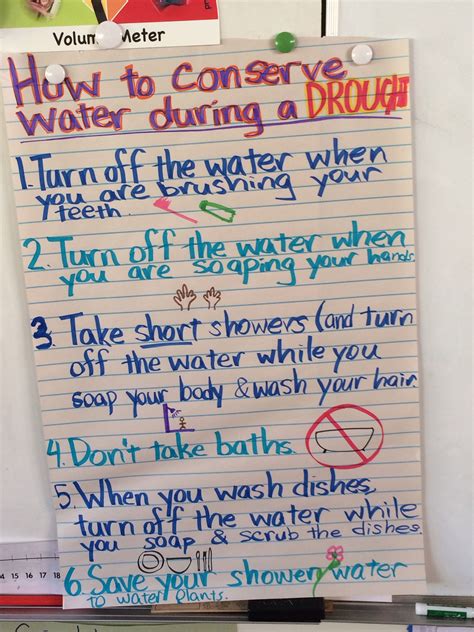 Volume Meter
How to Conserve
Water during a DROUGHT
1. Turn off the water when
you are brushing your
teeth.
2. Turn off the water when
you are soaping your hands.
3. Take short showers (and turn
off the water while you
soap your body & wash your hair
4. Don't take baths.
5. When you wash dishes,
turn off the water while
you soap & scrub the dishes.
6. Save your shower water
to water plants.
14 15 16 17 18